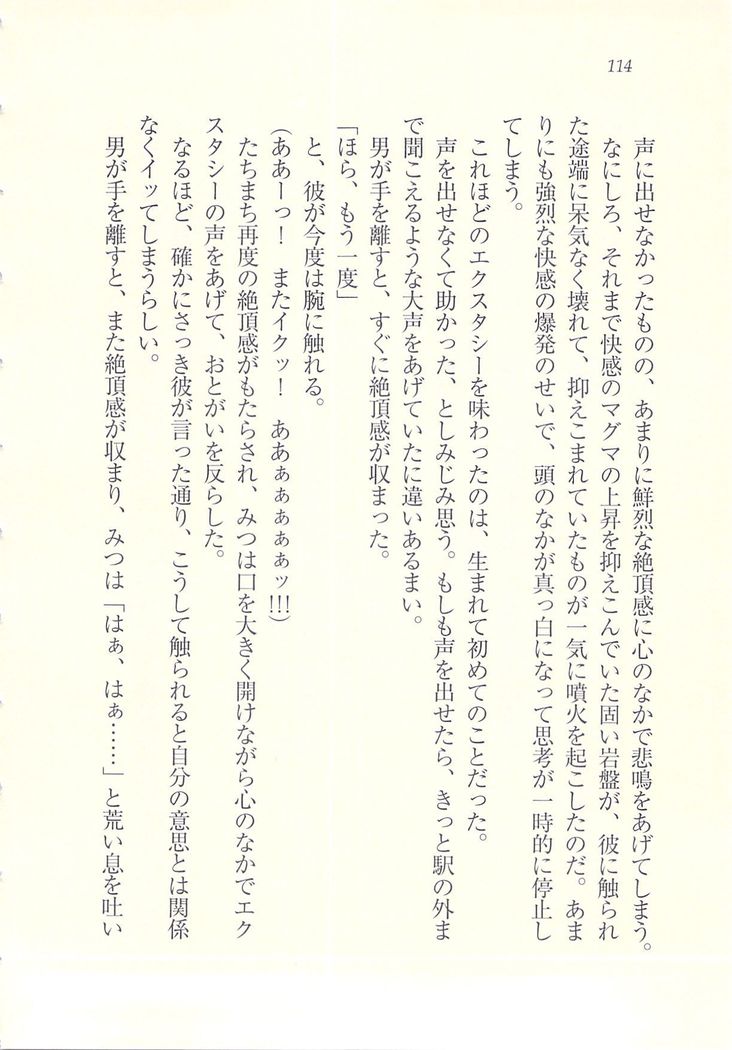 114
声に出せなかったものの、あまりに鮮烈な絶頂感に心のなかで悲鳴をあげてしまう。
なにしろ、それまで快感のマグマの上昇を抑えこんでいた固い岩盤が、彼に触られ
た途端に呆気なく壊れて、抑えこまれていたものが一気に噴火を起こしたのだ。あま
りにも強烈な快感の爆発のせいで、頭のなかが真っ白になって思考が一時的に停止し
てしまう。
これほどのエクスタシーを味わったのは、生まれて初めてのことだった。
声を出せなくて助かった、としみじみ思う。もしも声を出せたら、きっと駅の外ま
で聞こえるような大声をあげていたに違いあるまい。
男が手を離すと、すぐに絶頂感が収まった。
「ほら、もう一度」
と、彼が今度は腕に触れる。
(ああーっ！　またイクッ！　あああぁぁぁぁッ!!!)
たちまち再度の絶頂感がもたらされ、みつは口を大きく開けながら心のなかでエク
スタシーの声をあげて、おとがいを反らした。
なるほど、確かにさっき彼が言った通り、こうして触られると自分の意思とは関係
なくイッてしまうらしい。
男が手を離すと、また絶頂感が収まり、みつは「はぁ、はぁ……」と荒い息を吐い